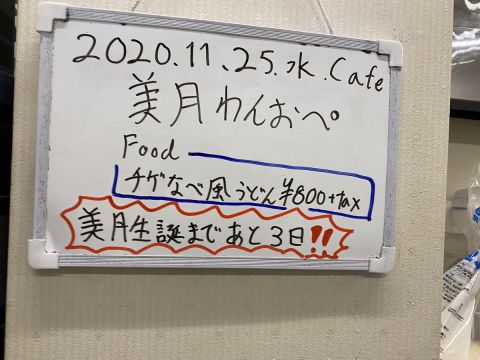 2020.11.25.水.Cafe
美月わんおぺ
Food
チゲなべ風うどん ¥800+tax
美月生誕まであと3日!!